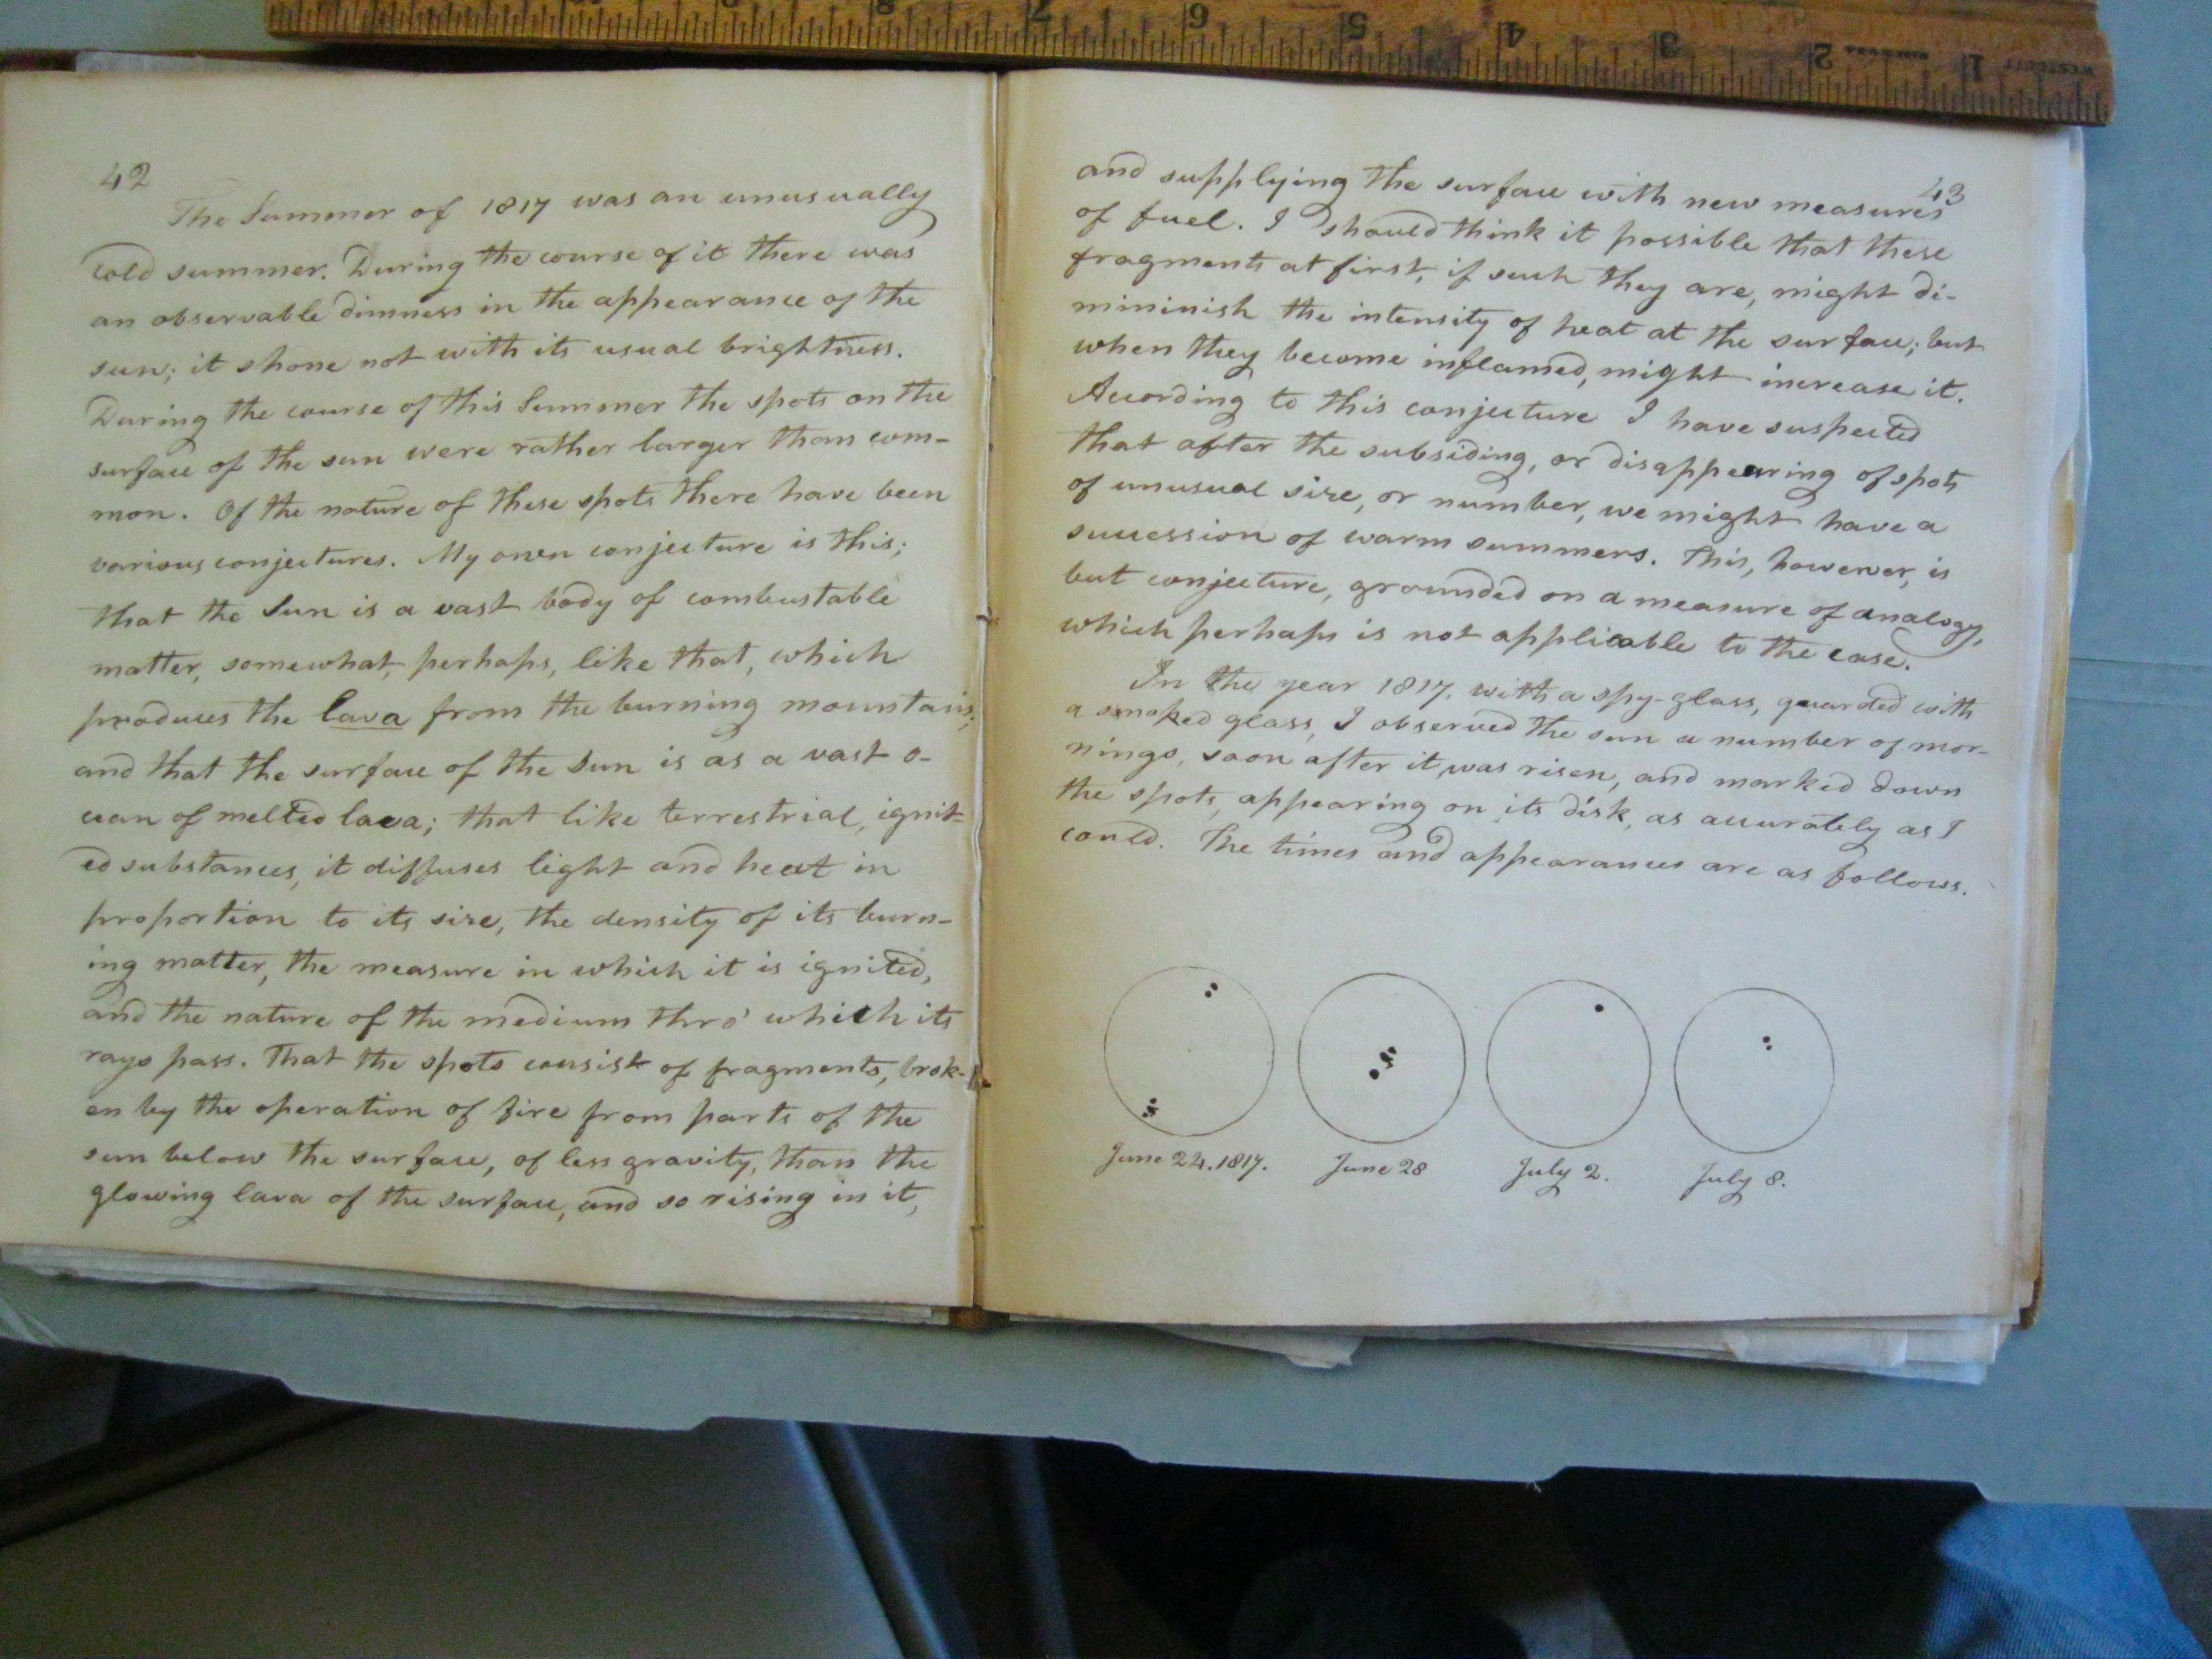 42
The Summer of 1817 was an unusually
cold summer. During the course of it there was
an observable dimness in the appearance of the
sun; it shone not with its usual brightness.
During the course of this Summer the spots on the
surface of the sun were rather larger than com-
mon. Of the nature of these spots there have been
various conjectures. My own conjecture is this;
that the Sun is a vast body of combustable
matter, somewhat, perhaps, like that, which
produces the lava from the burning mountains;
and that the surface of the Sun is as a vast o-
cean of melted lava; that like terrestrial, ignit-
ed substances, it diffuses light and heat in
proportion to its size, the density of its burn-
ing matter, the measure in which it is ignited,
and the nature of the medium thro' which its
rays pass. That the spots consist of fragments, brok-
en by the operation of fire from parts of the
sun below the surface, of less gravity, than the
glowing lava of the surface, and so rising in it,
43
and supplying the surface with new measures
of fuel. I should think it possible that these
fragments at first, if such they are, might di-
mininish the intensity of heat at the surface; but
when they become inflamed, might increase it.
According to this conjecture I have suspected
that after the subsiding, or disappearing of spots
of unusual size, or number, we might have a
succession of warm summers. This, however, is
but conjecture, grounded on a measure of analogy,
which perhaps is not applicable to the case.
In the year 1817, with a spy-glass, guarded with
a smoked glass, I observed the sun a number of mor-
nings, soon after it was risen, and marked down
the spots, appearing on its disk, as accurately as I
could. The times and appearances are as follows.
June 24. 1817.
June 28
July 2.
July 8.
1
2
3
4
5
6
7
8
WESTCOTT